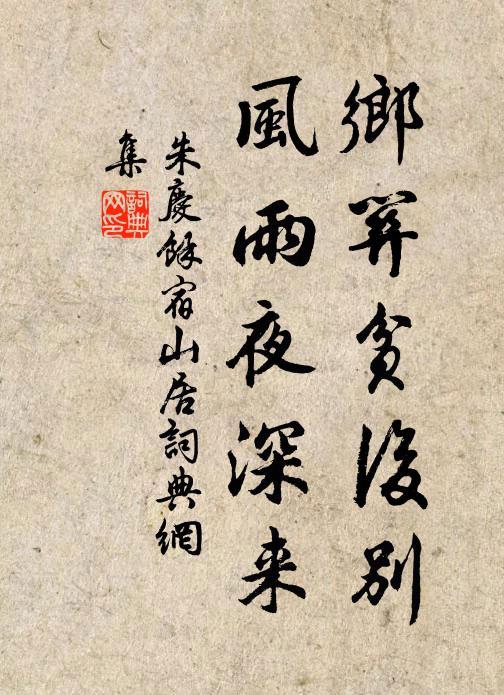 鄉算貧後別
風雨夜深来
朱慶餘宿山居詞典網
集
詞典
网印